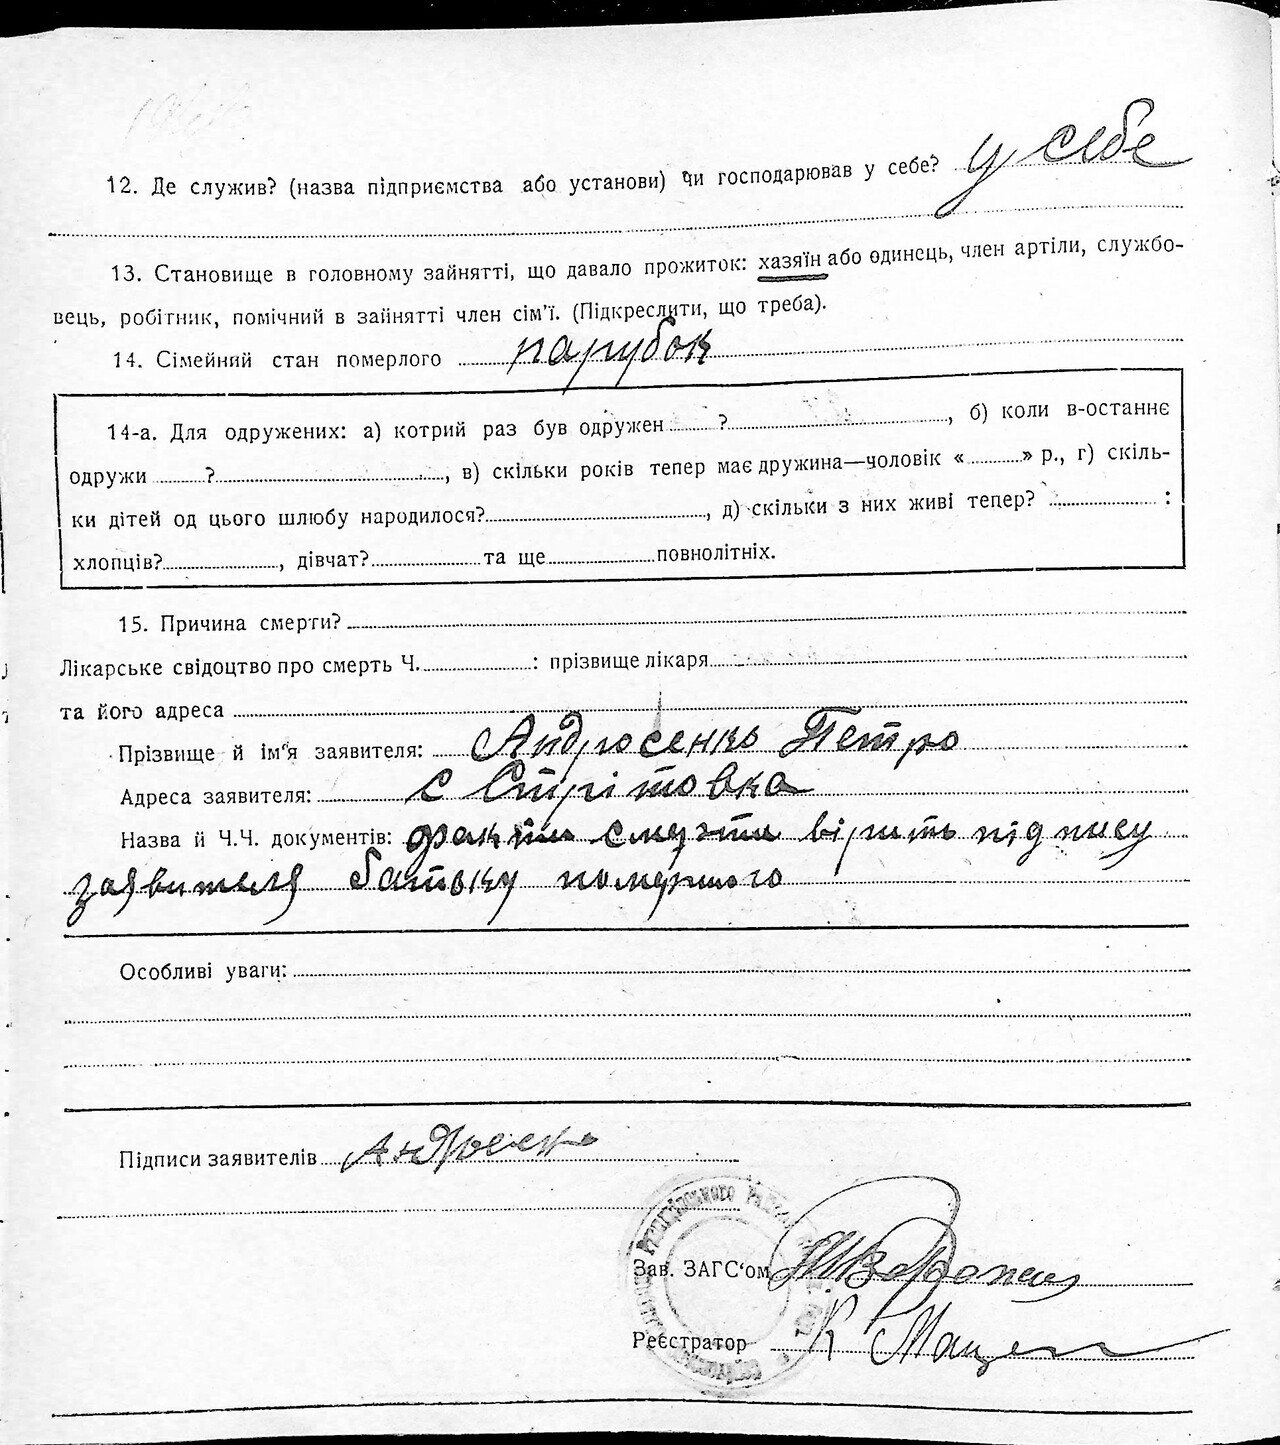 12. Де служив? (назва підприємства або установи) Чи господарював у себе? у себе
13. Становище в головному зайнятті, що давало прожиток: хазяїн або одинець, член артіли, службо-
вець, робітник, помічний в зайнятті член сім'ї. (Підкреслити, що треба).
14. Сімейний стан померлого парубок
14-а. Для одружених: а) котрий раз був одружен ? , б) коли в-останнє
одружи ? , в) скільки років тепер має дружина—чоловік « » р., г) скіль-
ки дітей од цього шлюбу народилося? , д) скільки з них живі тепер? :
хлопців? , дівчат? та ще повнолітніх.
15. Причина смерти?
Лікарське свідоцтво про смерть Ч. : прізвище лікаря
та його адреса
Прізвище й ім'я заявителя: Андросенко Петро
Адреса заявителя: с Стрітовка
Назва й Ч.Ч. документів: факти смерти вірить підпису
заявителя батьку помершого
Особливі уваги:
Підписи заявителів Андросенко
Зав. ЗАГС'ом
Реєстратор К